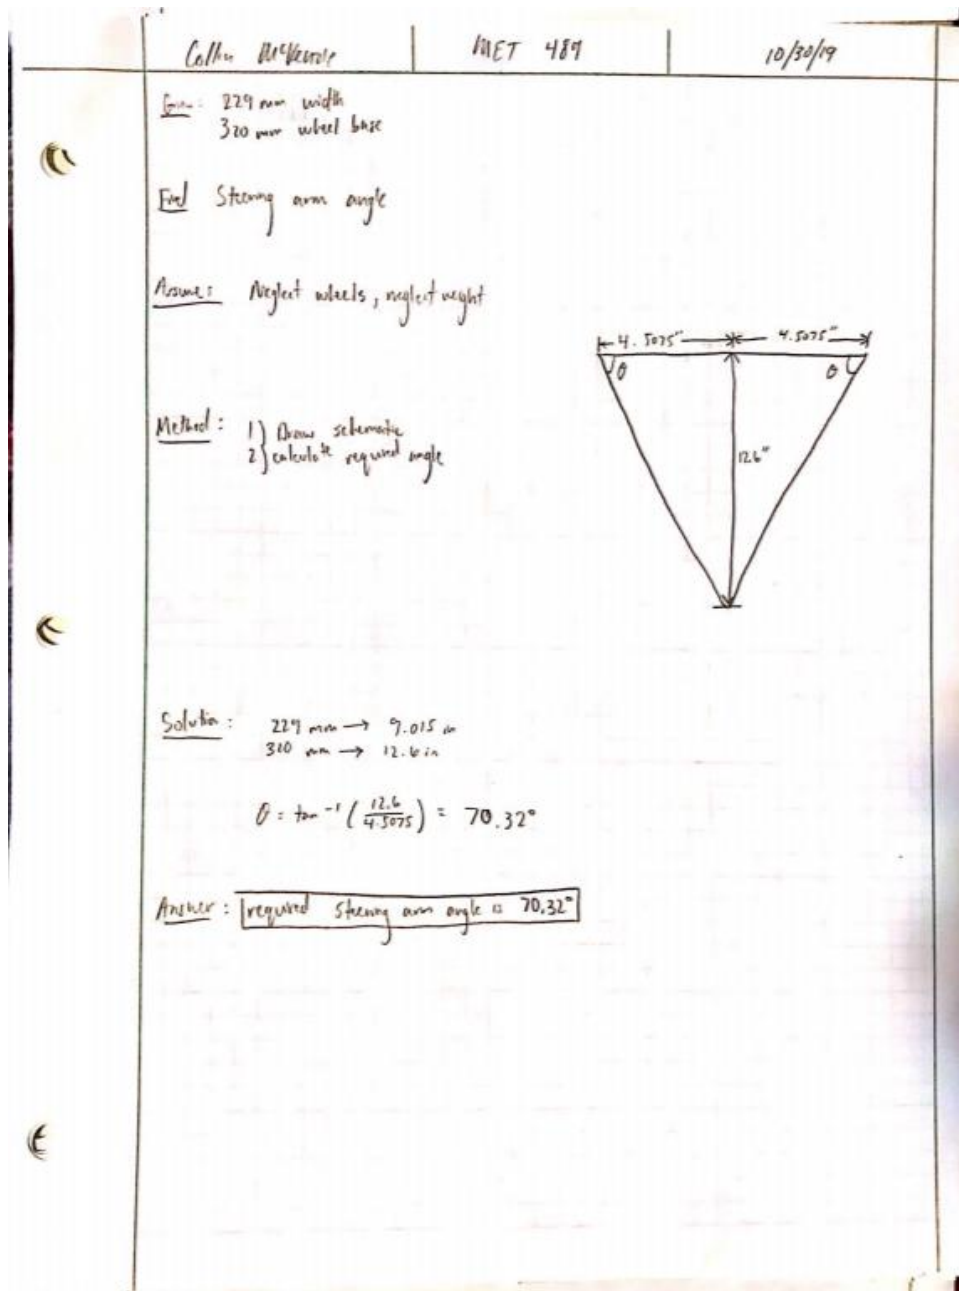 Collin McKenzie MET 489 10/30/19
Given: 229 mm width
320 mm wheel base
Find Steering arm angle
Assume: Neglect wheels, neglect weight
4.5075" 4.5075"
θ θ
Method: 1) Draw schematic
2) calculate required angle
12.6"
Solution: 229 mm → 9.015 in
320 mm → 12.6 in
θ = tan⁻¹ (12.6/4.5075) = 70.32°
Answer: required steering arm angle is 70.32°